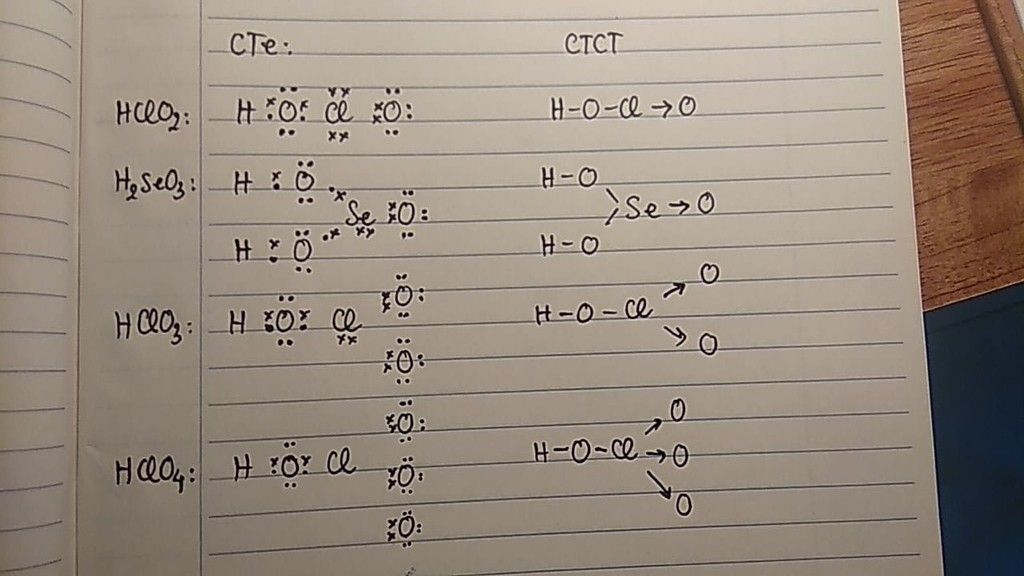 CTe: CTCT
HClO2: H :O: Cl :O: H-O-Cl→O
H2SeO3: H : O H-O
Se :O: Se→O
H : O H-O
:O: O
HClO3: H :O: Cl H-O-Cl
:O: O
:O: O
HClO4: H :O: Cl :O: H-O-Cl→O
:O: O